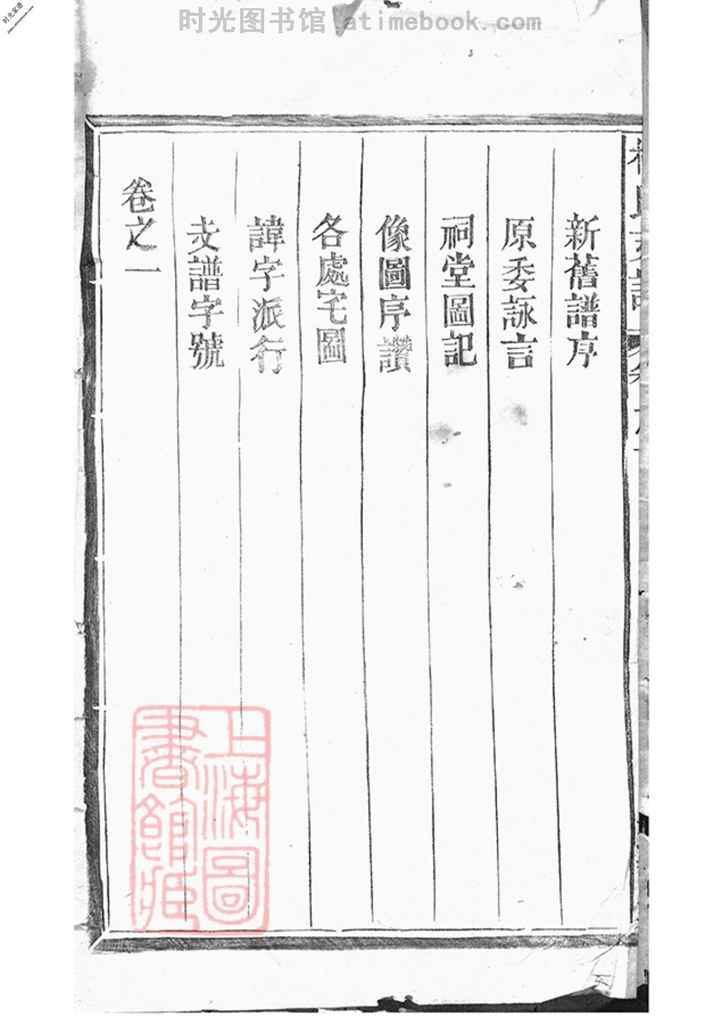 时光图书馆 latimebook.com
新舊譜序
原委詠言
祠堂圖記
像圖序讚
各處宅圖
諱字派行
支譜字號
卷之一
上海圖
書館藏